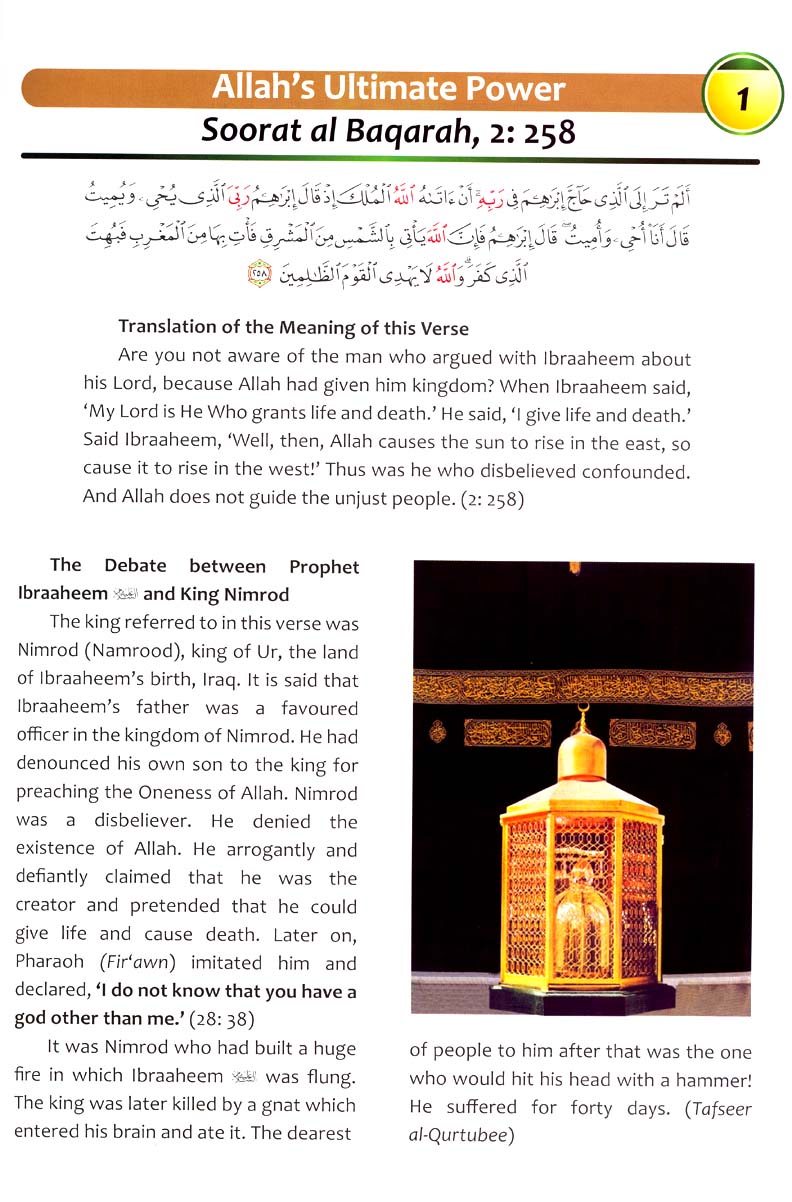 Allah's Ultimate Power
1
Soorat al Baqarah, 2: 258
أَلَمْ تَرَ إِلَى ٱلَّذِى حَآجَّ إِبْرَٰهِـۧمَ فِى رَبِّهِۦٓ أَنْ ءَاتَىٰهُ ٱللَّهُ ٱلْمُلْكَ إِذْ قَالَ إِبْرَٰهِـۧمُ رَبِّىَ ٱلَّذِى يُحْىِۦ وَيُمِيتُ
قَالَ أَنَا۠ أُحْىِۦ وَأُمِيتُ ۖ قَالَ إِبْرَٰهِـۧمُ فَإِنَّ ٱللَّهَ يَأْتِى بِٱلشَّمْسِ مِنَ ٱلْمَشْرِقِ فَأْتِ بِهَا مِنَ ٱلْمَغْرِبِ فَبُهِتَ
ٱلَّذِى كَفَرَ ۗ وَٱللَّهُ لَا يَهْدِى ٱلْقَوْمَ ٱلظَّٰلِمِينَ ٢٥٨
Translation of the Meaning of this Verse
Are you not aware of the man who argued with Ibraaheem about
his Lord, because Allah had given him kingdom? When Ibraaheem said,
'My Lord is He Who grants life and death.' He said, 'I give life and death.'
Said Ibraaheem, 'Well, then, Allah causes the sun to rise in the east, so
cause it to rise in the west!' Thus was he who disbelieved confounded.
And Allah does not guide the unjust people. (2: 258)
The Debate between Prophet
Ibraaheem and King Nimrod
The king referred to in this verse was
Nimrod (Namrood), king of Ur, the land
of Ibraaheem's birth, Iraq. It is said that
Ibraaheem's father was a favoured
officer in the kingdom of Nimrod. He had
denounced his own son to the king for
preaching the Oneness of Allah. Nimrod
was a disbeliever. He denied the
existence of Allah. He arrogantly and
defiantly claimed that he was the
creator and pretended that he could
give life and cause death. Later on,
Pharaoh (Fir'awn) imitated him and
declared, 'I do not know that you have a
god other than me.' (28: 38)
It was Nimrod who had built a huge
fire in which Ibraaheem was flung.
The king was later killed by a gnat which
entered his brain and ate it. The dearest
of people to him after that was the one
who would hit his head with a hammer!
He suffered for forty days. (Tafseer
al-Qurtubee)